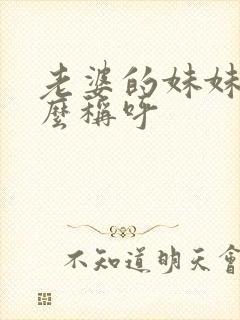 老婆的妹妹
麼稱呼
不知道明天會